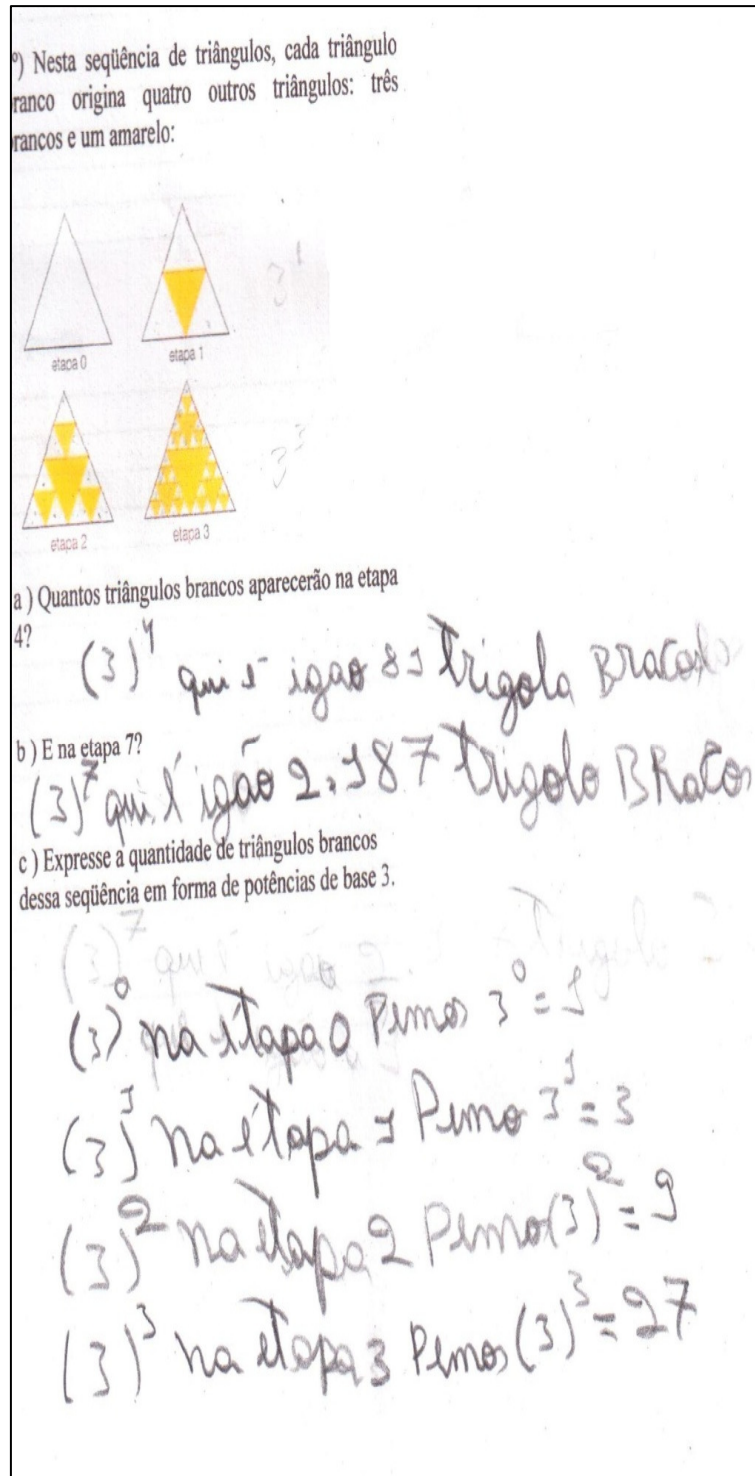 º) Nesta seqüência de triângulos, cada triângulo
ranco origina quatro outros triângulos: três
rancos e um amarelo:
etapa 0
etapa 1
3¹
etapa 2
etapa 3
3³
a ) Quantos triângulos brancos aparecerão na etapa
4?
(3)⁴ qui é igao 81 Trigola Bracos
b ) E na etapa 7?
(3)⁷ qui é igão 2.187 Trigolo BRacos
c ) Expresse a quantidade de triângulos brancos
dessa seqüência em forma de potências de base 3.
(3)⁷ qui é igão 2. Trigolo
(3)⁰ na etapa 0 Pemos 3⁰ = 1
(3)¹ na etapa 1 Pemo 3¹ = 3
(3)² na etapa 2 Pemo (3)² = 9
(3)³ na etapa 3 Pemos (3)³ = 27